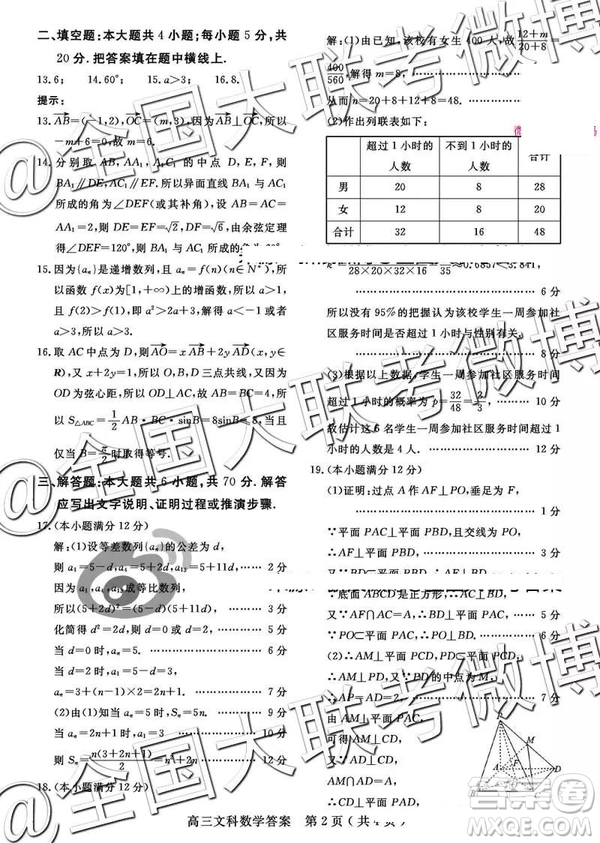 二、填空题:本大题共4小题;每小题5分,共
20分.把答案填在题中横线上.
13.6; 14.60°; 15.a>3; 16.8.
提示:
13.AB=(-1,2),OC=(m,3),因为AB⊥OC,所以
-m+6=0,故m=6.
14.分别取AB、AA₁、A₁C₁的中点D、E、F,则
BA₁∥DE,AC₁∥EF.所以异面直线BA₁与AC₁所
形成的角为∠DEF(或其补角),设AB=AC=
AA₁=2,则DE=EF=√2,DF=√6,由余弦定理
得∠DEF=120°,故BA₁与AC₁所成的角为60°.
15.因为{aₙ}是递增数列,且aₙ=f(n)(n∈N*),所
以函数f(x)为[1,+∞)上的增函数,
所以f(2)>f(1),即a²>2a+3,解得a<-1或
者a>3.
16.取AC中点D,则AO=xAB+2yAD(x,y∈
R),因为x+2y=1,所以B、O、D三点共线,又因为
OD为弦心距,所以OD⊥AC,故BA=BC=4,
以S△ABC=1/2AB·BC·sinB=8sinB≤8,当且仅
当∠B=π/2时,取等号.
三、解答题:本大题共6小题,共70分.解答
应写出文字说明、证明过程或推演步骤.
17.(本小题满分12分)
解:(1)设等差数列{aₙ}的公差为d,
则a₁=5-d,a₄=5+2d,a₁₃=5+11d, 2分
因为a₁,a₄,a₁₃成等比数列,
所以(5+2d)²=(5-d)(5+11d), 3分
化简得d²=2d,则d=0或d=2, 4分
当d=0时,aₙ=5. 5分
当d=2时,a₁=5-d=3,
aₙ=3+(n-1)×2=2n+1. 7分
(2)由(1)知当aₙ=5时,Sₙ=5n. 9分
当aₙ=2n+1时,a₁=3,
则Sₙ=n(3+2n+1)/2=n²+2n. 12分
18.(本小题满分12分)
解:(1)由已知,该校有女生400人,故(12+m)/(20+8)=
400/560,解得m=8,
从而n=20+8+12+8=48.
(2)作出列联表如下:
超过1小时的人数 不到1小时的人数 合计
男 20 8 28
女 12 8 20
合计 32 16 48
28×20×32×16 35 ≈0.6857<3.841,
6分
所以没有95%的把握认为该校学生一周参加社
区服务时间是否超过1小时与性别有关.
8分
(3)根据以上数据,学生一周参加社区服务时间
超过1小时的概率为p=32/48=2/3,
故估计这6名学生一周参加社区服务时间超过
1小时的人数是4人. 12分
19.(本小题满分12分)
(1)证明:过点A作AF⊥PO,垂足为F,
1分
∵平面PAC⊥平面PBD,且交线为PO,
∴AF⊥平面PBD, 3分
∵底面ABCD为正方形,
又∵AF∩AC=A,
又∵PO⊂平面PAC,
(2)∴AM⊥平面PCD,
∴AP=AD=2,
由AM⊥CD,
可得AM⊥CD,
又∵AD⊥CD,
AM∩AD=A,
∴CD⊥平面PAD,
∴CD⊥PA,
高三文科数学答案 第2页(共4页)
@全国大联考微博
答案圈